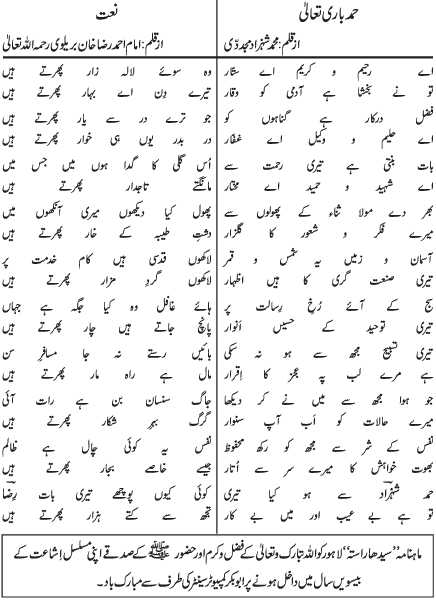 حمد باری تعالیٰ
از قلم: محمد شہزاد مجددی
اے رحیم و کریم اے ستار
تو نے بخشا ہے آدمی کو وقار
فضل درکار ہے گناہوں کو
اے حلیم و وکیل اے غفار
بات بنتی ہے تیری رحمت سے
اے شہید و حمید اے مختار
بھر دے مولا ثناء کے پھولوں سے
میرے فکر و شعور کا گلزار
آسمان و زمیں یہ شمس و قمر
تیری صنعت گری کا ہیں اظہار
سج کے آئے رُخِ رسالت پر
تیری توحید کے حسیں انوار
تیری تسبیح مجھ سے ہو نہ سکی
ہے مرے لب پہ عجز کا اِقرار
جو ہوا مجھ سے میں نے کر دیکھا
میرے حالات کو اَب آپ سنوار
نفس کے شر سے مجھ کو رکھ محفوظ
بھوت خواہش کا میرے سر سے اُتار
حمد شہزاد سے ہو کیا تیری
تو ہے بے عیب اور میں بے کار
نعت
از قلم: امام احمد رضا خان بریلوی رحمہ اللہ تعالیٰ
وہ سوئے لالہ زار پھرتے ہیں
تیرے دِن اے بہار پھرتے ہیں
جو ترے در سے یار پھرتے ہیں
در بدر یوں ہی خوار پھرتے ہیں
اُس گلی کا گدا ہوں میں جس میں
مانگتے تاجدار پھرتے ہیں
پھول کیا دیکھوں میری آنکھوں میں
دشتِ طیبہ کے خار پھرتے ہیں
لاکھوں قدسی ہیں کام خدمت پر
لاکھوں گردِ مزار پھرتے ہیں
ہائے غافل وہ کیا جگہ ہے جہاں
پانچ جاتے ہیں چار پھرتے ہیں
بائیں رستے نہ جا مسافر سن
مال ہے راہ مار پھرتے ہیں
جاگ سنسان بن ہے رات آئی
گرگ بہرِ شکار پھرتے ہیں
نفس یہ کوئی چال ہے ظالم
جیسے خاصے بجار پھرتے ہیں
کوئی کیوں پوچھے تیری بات رضا
تجھ سے کتے ہزار پھرتے ہیں
ماہنامہ ”سیدھا راستہ“ لاہور کو اللہ تبارک و تعالیٰ کے فضل و کرم اور حضور ﷺ کے صدقے اپنی مسلسل اِشاعت کے
بیسویں سال میں داخل ہونے پر ابوبکر کمپیوٹر سینٹر کی طرف سے مبارک باد۔